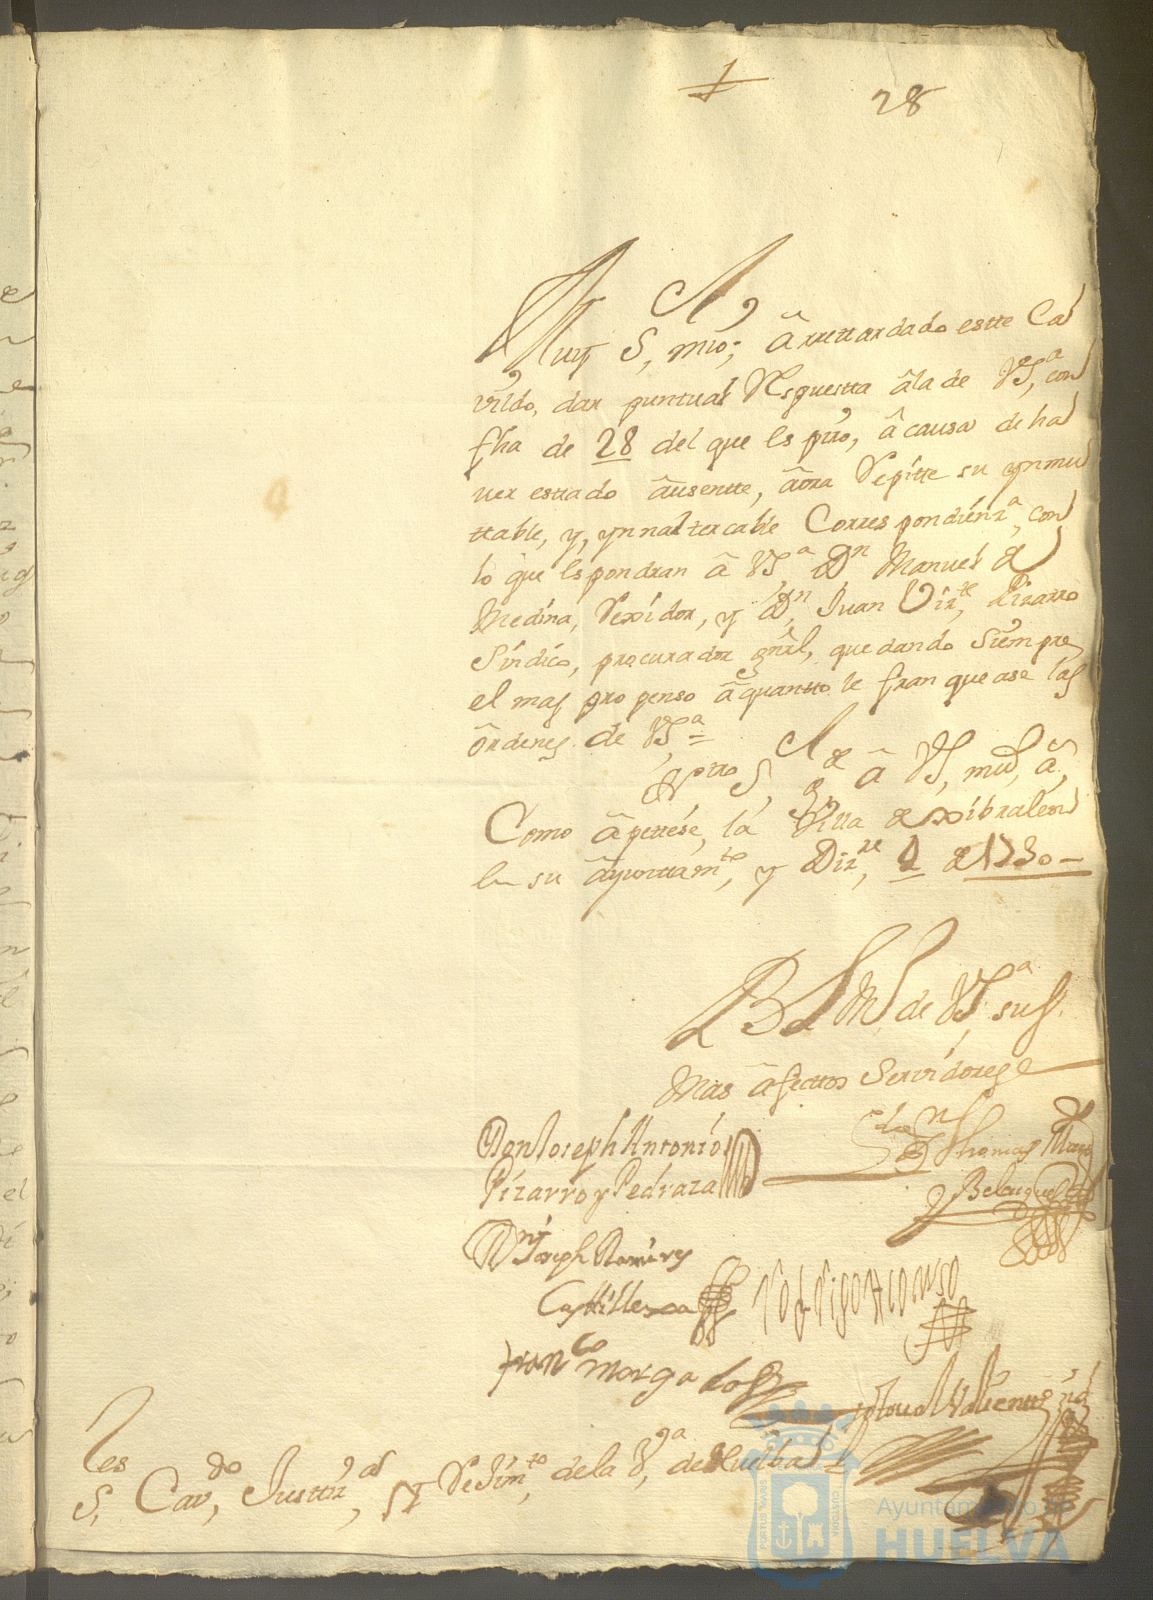 28
Muy S, mio; â rrettardado estte Ca
vildo, dar puntual Respuestta âla de VSª, con
fha de 28 del que es pº, â causa de ha
ver estado âusentte, âora Repitte su ynmu
ttable, y, ynnalterable Correspondienzª, con
lo que Espondran â VSª Dn Manuel de
Medina, Rexidor, y Dn, Juan Vizte, Pizarro
Sindico, procurador gnrl, quedando Siempre
el mas propenso âquantto le franquease las
ôrdenes de VSª =
Nro S, gue â VS, mus, âs,
Como âpettese, la Villa de Xibraleon
en su âyunttamto, y Dizre, 1 de 1730 —
BLM de VSª sus
Mas âfecttos Servidores
Don Joseph Antonio
Pizarro y Pedraza
Ldo Dn Thomas
y Belazquez
Dn Joseph Ramires
Castillexa
Rodrigo Alonso
Franco Morgado
Valiente
S,res Cavdo, Justizª, y Rejimto, dela Vª, de Huelba
PORTUS MARIS
CUSTODIA
Ayuntamiento de
HUELVA